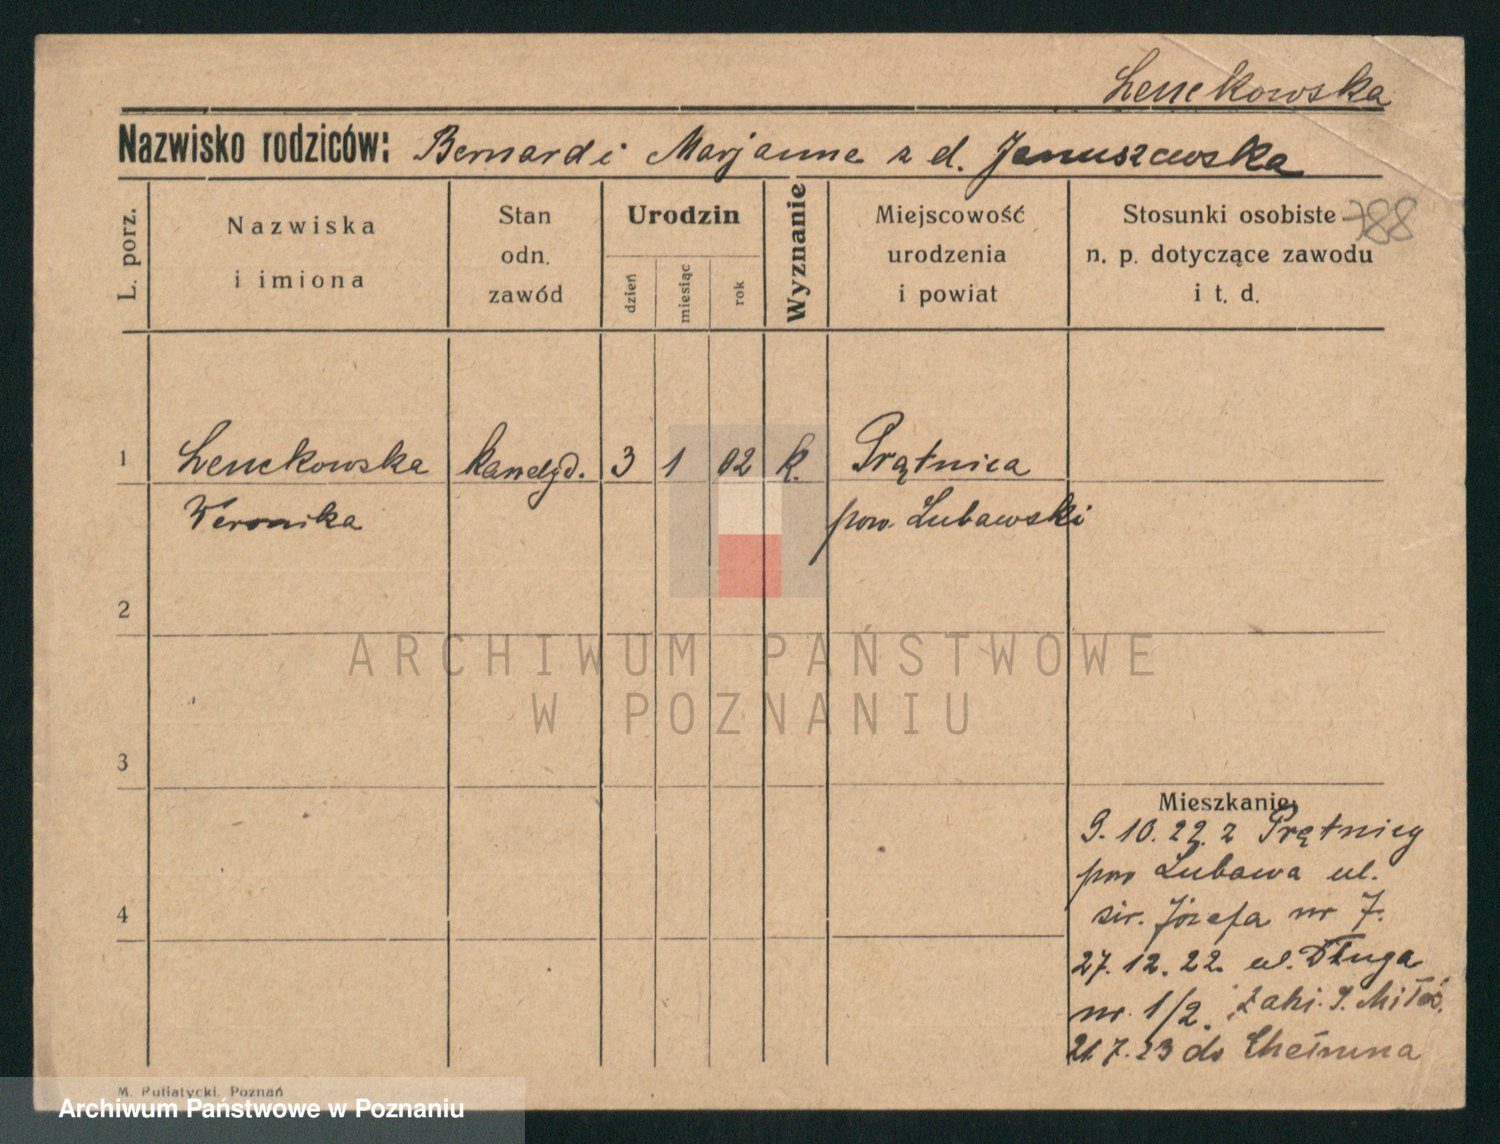 Lenckowska
Nazwisko rodziców: Bernard i Marjanne z d. Januszewska
788
L. porz.
Nazwiska
i imiona
Stan
odn.
zawód
Urodzin
dzień
miesiąc
rok
Wyznanie
Miejscowość
urodzenia
i powiat
Stosunki osobiste
n. p. dotyczące zawodu
i t. d.
1 Lenckowska kandyd. 3 1 02 k. Prątnica
Weronika pow. Lubawski
2
3
4
Mieszkanie:
9. 10. 22. z Prątnicy
pow Lubawa ul.
św. Józefa nr 7.
27. 12. 22. ul. Długa
nr. 1/2.
21.7.23 do Chełmna
M. Putiatycki, Poznań
ARCHIWUM PAŃSTWOWE
W POZNANIU
Archiwum Państwowe w Poznaniu